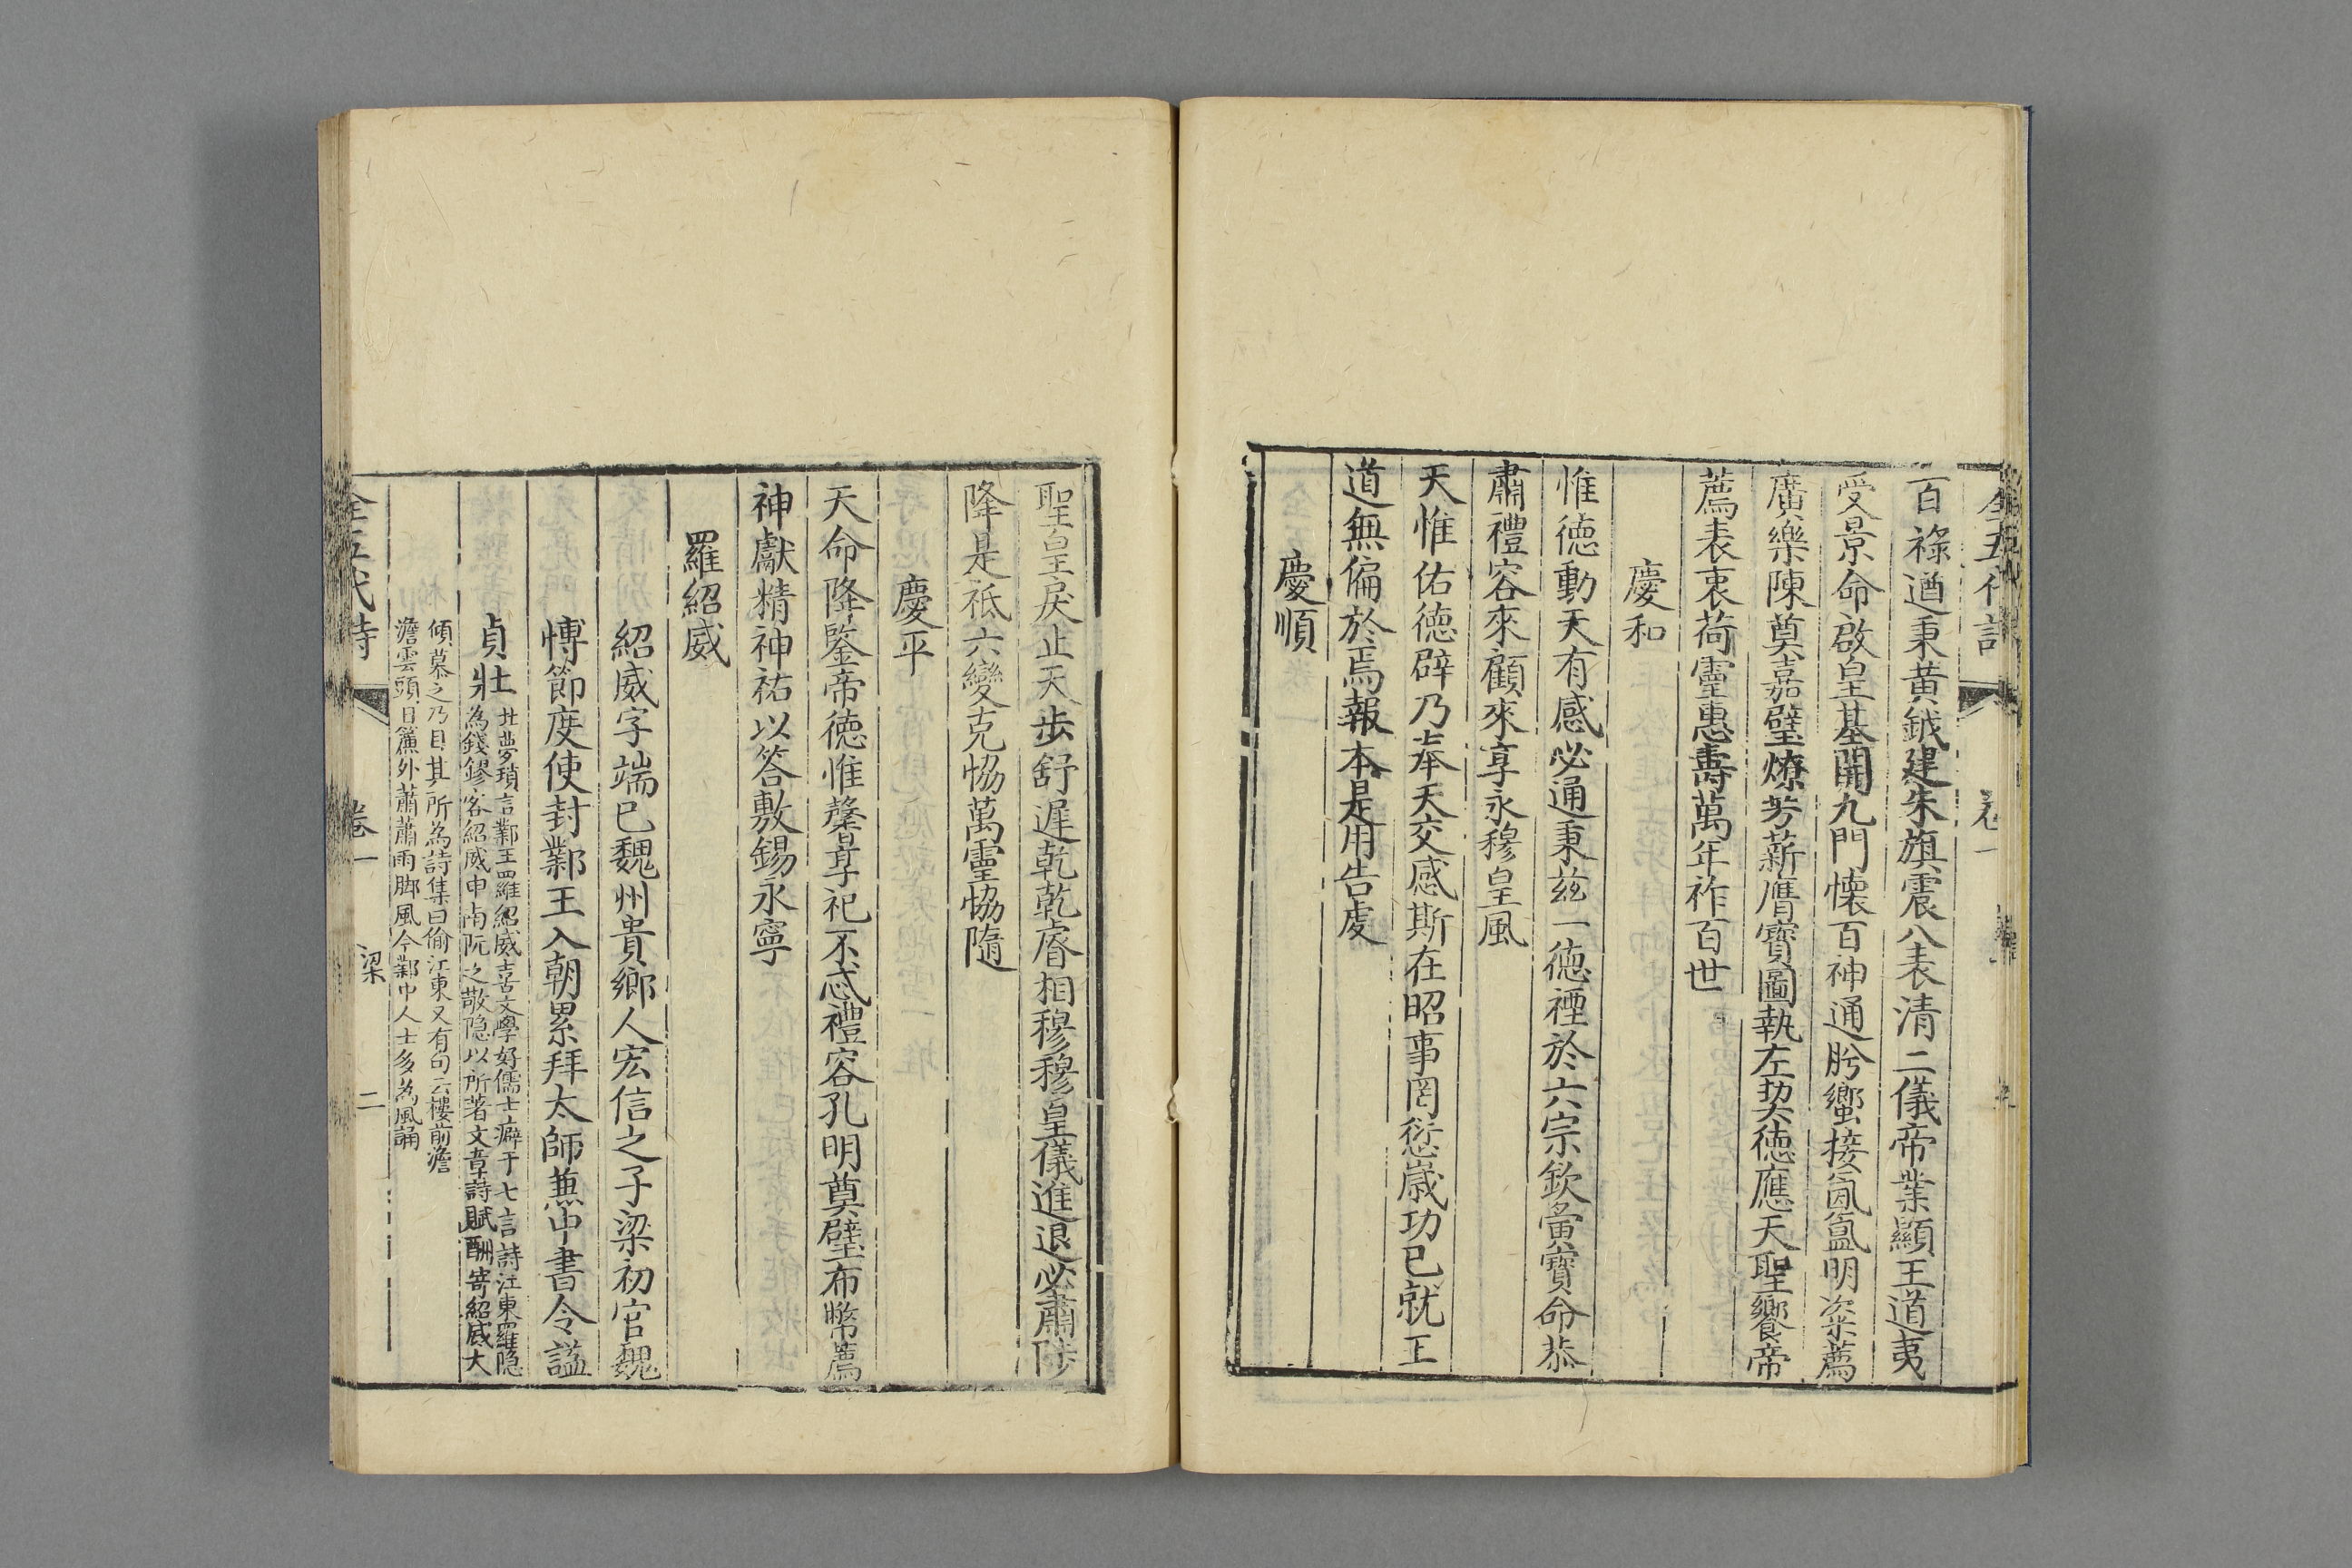 全五代詩
卷一
百祿遒秉黃鉞建朱旗震八表清二儀帝業顯王道夷
受景命啟皇基開九門懷百神通肸蠁接氤氳明粢薦
廣樂陳奠嘉璧燎芳薪膺寶圖執左契德應天聖饗帝
薦表衷荷靈惠壽萬年祚百世
慶和
惟德動天有感必通秉茲一德禋於六宗欽夤寶命恭
肅禮容來顧來享永穆皇風
天惟佑德辟乃奉天交感斯在昭事罔愆歲功已就王
道無偏於焉報本是用告虔
慶順
聖皇戾止天步舒遲乾乾睿相穆穆皇儀進退必肅陟
降是祗六變克協萬靈協隨
慶平
天命降鑒帝德惟馨享祀不忒禮容孔明奠璧布幣薦
神獻精神祐以答敷錫永寧
羅紹威
紹威字端已魏州貴鄉人宏信之子梁初官魏
博節度使封鄴王入朝累拜太師兼中書令諡
貞壯
北夢瑣言鄴王羅紹威喜文學好儒士癖于七言詩江東羅隱
為錢鏐客紹威申南阮之敬隱以所著文章詩賦酬寄紹威大
傾慕之乃目其所為詩集曰偷江東又有句云樓前澹
澹雲頭日簾外蕭蕭雨脚風今鄴中人士多為風誦
全五代詩
卷一
梁
二